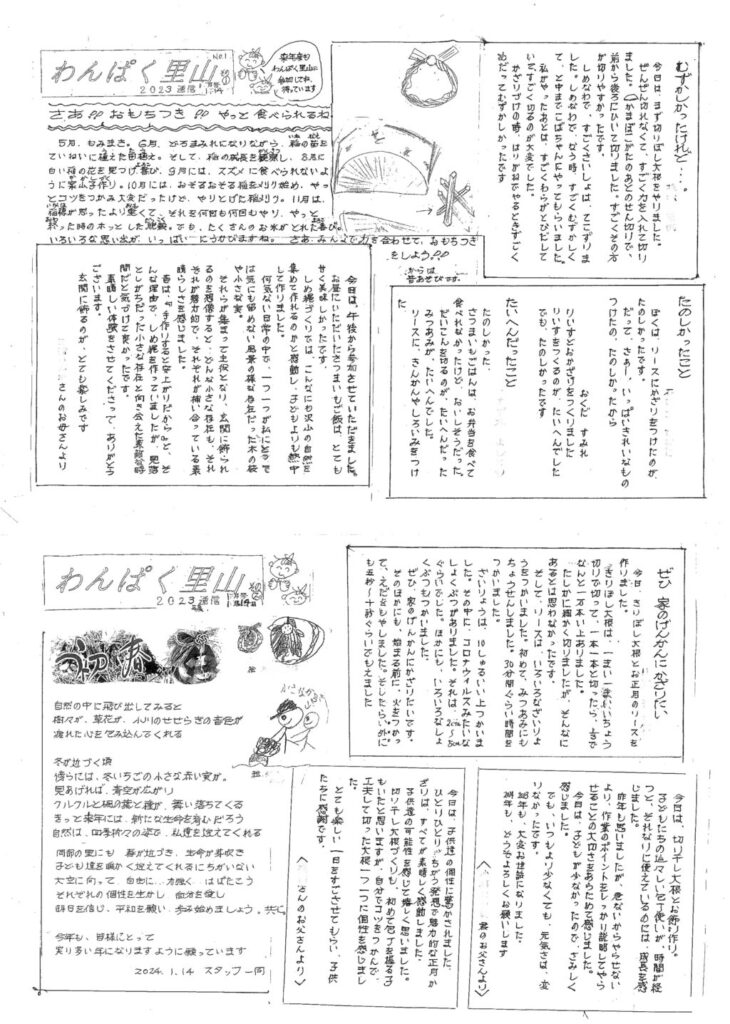 わんぱく里山
No.1
2023通信
来年度も
わんぱく里山に
参加してね
待っています
さあ!! おもちつき!! やっと食べられるね
5月、もみまき。6月、どろまみれになりながら、稲の苗を
ていねいに植えた田植え。そして、稲の成長を観察し、8月に
白い稲の花を見つけ喜び、9月には、スズメに食べられないよう
に案山子作り。10月には、おそるおそる稲を刈り始め、やっ
とコツをつかみ大変だったけど、やりとげた稲刈り。11月は、
それを何回も何回もやり、やっと
終った時のホッとした
でも、たくさんのお米がとれた喜び。
いろいろな思い出が、いっぱいにうかびますね。さあ、みんなで力を合わせて、おもちつき
をしよう!!
昔あそびです。
むずかしかったけれど…。
今日は、まず切りぼし大根をやりました。
ぜんぜん切れなくて、すごく力を入れて切り
ました。かまぼこがたのあとのせん切りで、
前から後ろにひいて切りました。すごくその方
が切りやすかったです。
しめなわで、すごくさいしょは、てこずりま
した。しめなわで、なう時、すごくむずかしく
て、と中までこばちゃんにやってもらいました。
私がやったあとは、すごくわらがとびだして
いて、すごく切るのが大変でした。
かざりづけの時は、はりがねでやるときすごく
さだってむずかしかったです。
たのしかったこと
ぼくは、リースにかざりをつけたのが、
たのしかったです。
だって、さぁー、いっぱいきれいなもの
がつけれて、たのしかったから
おくだ　すみれ
りいすとおかざりをつくりました
りいすをつくるのが、たいへんでした
でも、たのしかったです
たいへんだったこと
たのしかった。
さつまいもごはんは、お弁当を食べて
食べれなかったけど、おいしそうだった。
だいこんを切るのが、たいへんだった
みつあみが、たいへんでした。
リースに、きんかんやしろいみをつけ
た。
今日は、午後から参加させていただきました。
お昼にいただいたさつまいもご飯は、とても
甘く美味しかったです。
しめ縄づくりでは、こんなにも沢山の自然を
集めて作れるのかと感動し、子どもよりも熱中
して作りました。
何気ない日常の中で、一つ一つが私にとって
は気にも留めない風景の様な存在だった木の枝
や小さな実。
それらが集まって主役となり、玄関に飾られ
るのを想像すると、どんな小さな存在も、それ
それが魅力的で、それぞれが補い合っている素
晴らしさを感じました。
昔は、『手作りすると安上がりだから』と、そ
んな理由で、しめ縄を作っていましたが、見落
としがちだった小さな存在と向き合えた素敵な時
間だと気づけて良かったです。
素晴しい体験をさせてくださって、ありがとう
ございます。
玄関に飾るのが、とても楽しみです
さんのお母さんより
わんぱく里山
No.2
2023通信
初春
自然の中に飛び出してみると
樹々が、草花が、小川のせせらぎの音色が
疲れた心を包み込んでくれる
冬が近づく頃
傍らには、冬いちごの小さな赤い実が。
見あげれば、青空が広がり
クルクルと楓の葉と種が、舞い落ちてくる
きっと来年には、新たな生命を育むだろう
自然は、四季折々の姿で、私達を迎えてくれる
岡部の里にも　春が近づき、生命が芽吹き
子ども達を暖かく迎えてくれるにちがいない
大空に向って、自由に…力強く　はばたこう
それぞれの個性を生かし　命を愛し
明日を信じ、平和を願い、歩み始めましょう。共に
今年も、皆様にとって
実り多い年になりますように願っています
2024.1.14　スタッフ一同
ぜひ　家のげんかんにかざりたい
今日、きりぼし大根とお正月のリースを
作りました。
きりぼし大根は、一まい一まいいちょう
切りで切って、一本一本と切ったら、
なんと一万本い上ありました。
たしかに細かく切りましたが、そんなに
あるとは思わなかったです。
そして、リースは、いろいろなざいりょ
うをつかいました。初めて、みつあみにも
ちょうせんしました。30分間ぐらい時間を
つかいました。
ざいりょうは、10しゅるいい上つかいま
した。その中に、コロナウイルスみたいな
しょくぶつがありました。それは、2cm〜5cm
ぐらいでした。ほかにも、いろいろなしょ
くぶつもつかいました。
ぜひ、家のげんかんにかざりたいです。
そのほかにも、始まる前に、火をつかっ
て、えだをもやしました。そしたら、いがい
も五秒〜十秒ぐらいでもえました
今日は、切り干し大根とお飾り作り。
子どもたちの近々しい包丁使いが、時間が経
つと、それなりに使えているのには、成長を感
じました。
昨年も思いましたが、危ないからやらせない
より、作業のポイントをしっかり説明してやら
せることの大切さをあらためて感じました。
今日は、子どもが少なかったので、さみしく
感じました。
でも、いつもより少なくても、元気さは、変
りなかったです。
23年も、大変お世話になりました。
24年も、どうぞよろしくお願いします
君のお父さんより〉
今日は、子供達の個性に驚かされました。
ひとりひとりがちがう発想で魅力的な正月か
ざりは、すべてが素晴しく感動しました。
子供達の可能性を感じて嬉しく思いました。
切り干し大根づくりも、初めて包丁を握る子
もいたと思いますが、自分でコツをつかんで、
工夫して切った大根一つ一つに個性を感じまし
た。
とても楽しい一日をすごさせてもらい、子供
たちに感謝です。
〈　さんのお父さんより〉